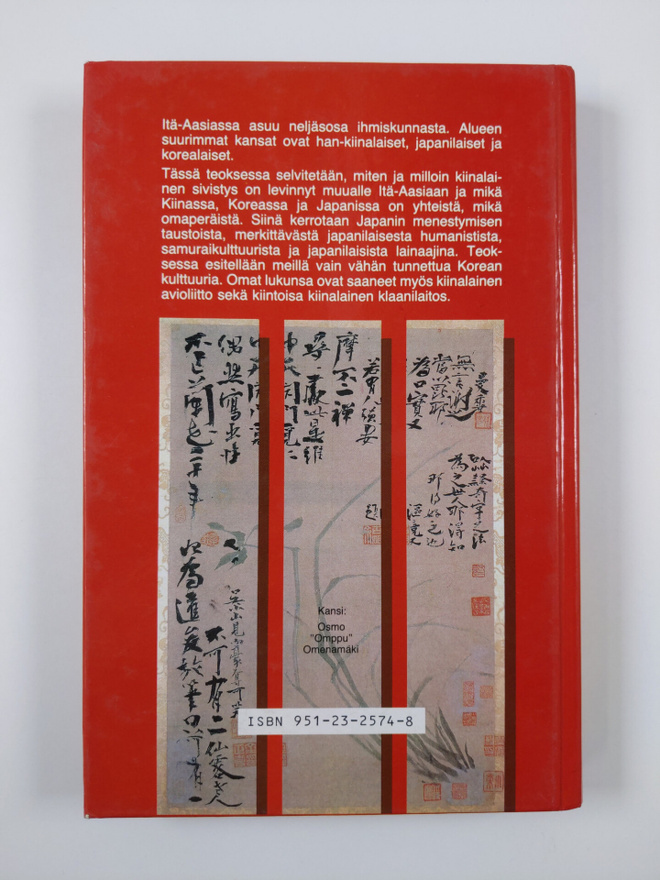 Itä-Aasiassa asuu neljäsosa ihmiskunnasta. Alueen
suurimmat kansat ovat han-kiinalaiset, japanilaiset ja
korealaiset.
Tässä teoksessa selvitetään, miten ja milloin kiinalai-
nen sivistys on levinnyt muualle Itä-Aasiaan ja mikä
Kiinassa, Koreassa ja Japanissa on yhteistä, mikä
omaperäistä. Siinä kerrotaan Japanin menestymisen
taustoista, merkittävästä japanilaisesta humanistista,
samuraikulttuurista ja japanilaisista lainaajina. Teok-
sessa esitellään meillä vain vähän tunnettua Korean
kulttuuria. Omat lukunsa ovat saaneet myös kiinalainen
avioliitto sekä kiintoisa kiinalainen klaanilaitos.
偶然寫出性
此是維
摩不二禪
爲口實又
無言謝
曼香
以草隸奇字之法
爲之世人那得知
那得好之也
漚竟又
題
不可有二仙客老人
吳小山見而豪奪可笑
Kansi:
Osmo
"Omppu"
Omenamäki
ISBN 951-23-2574-8